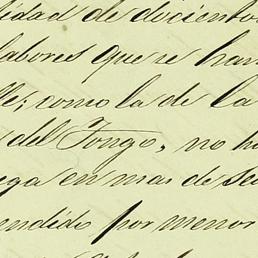 tidad de docientos
labores que se han
lle; como la de la
del Tongo, no h
ega en mas de se
endido por menor